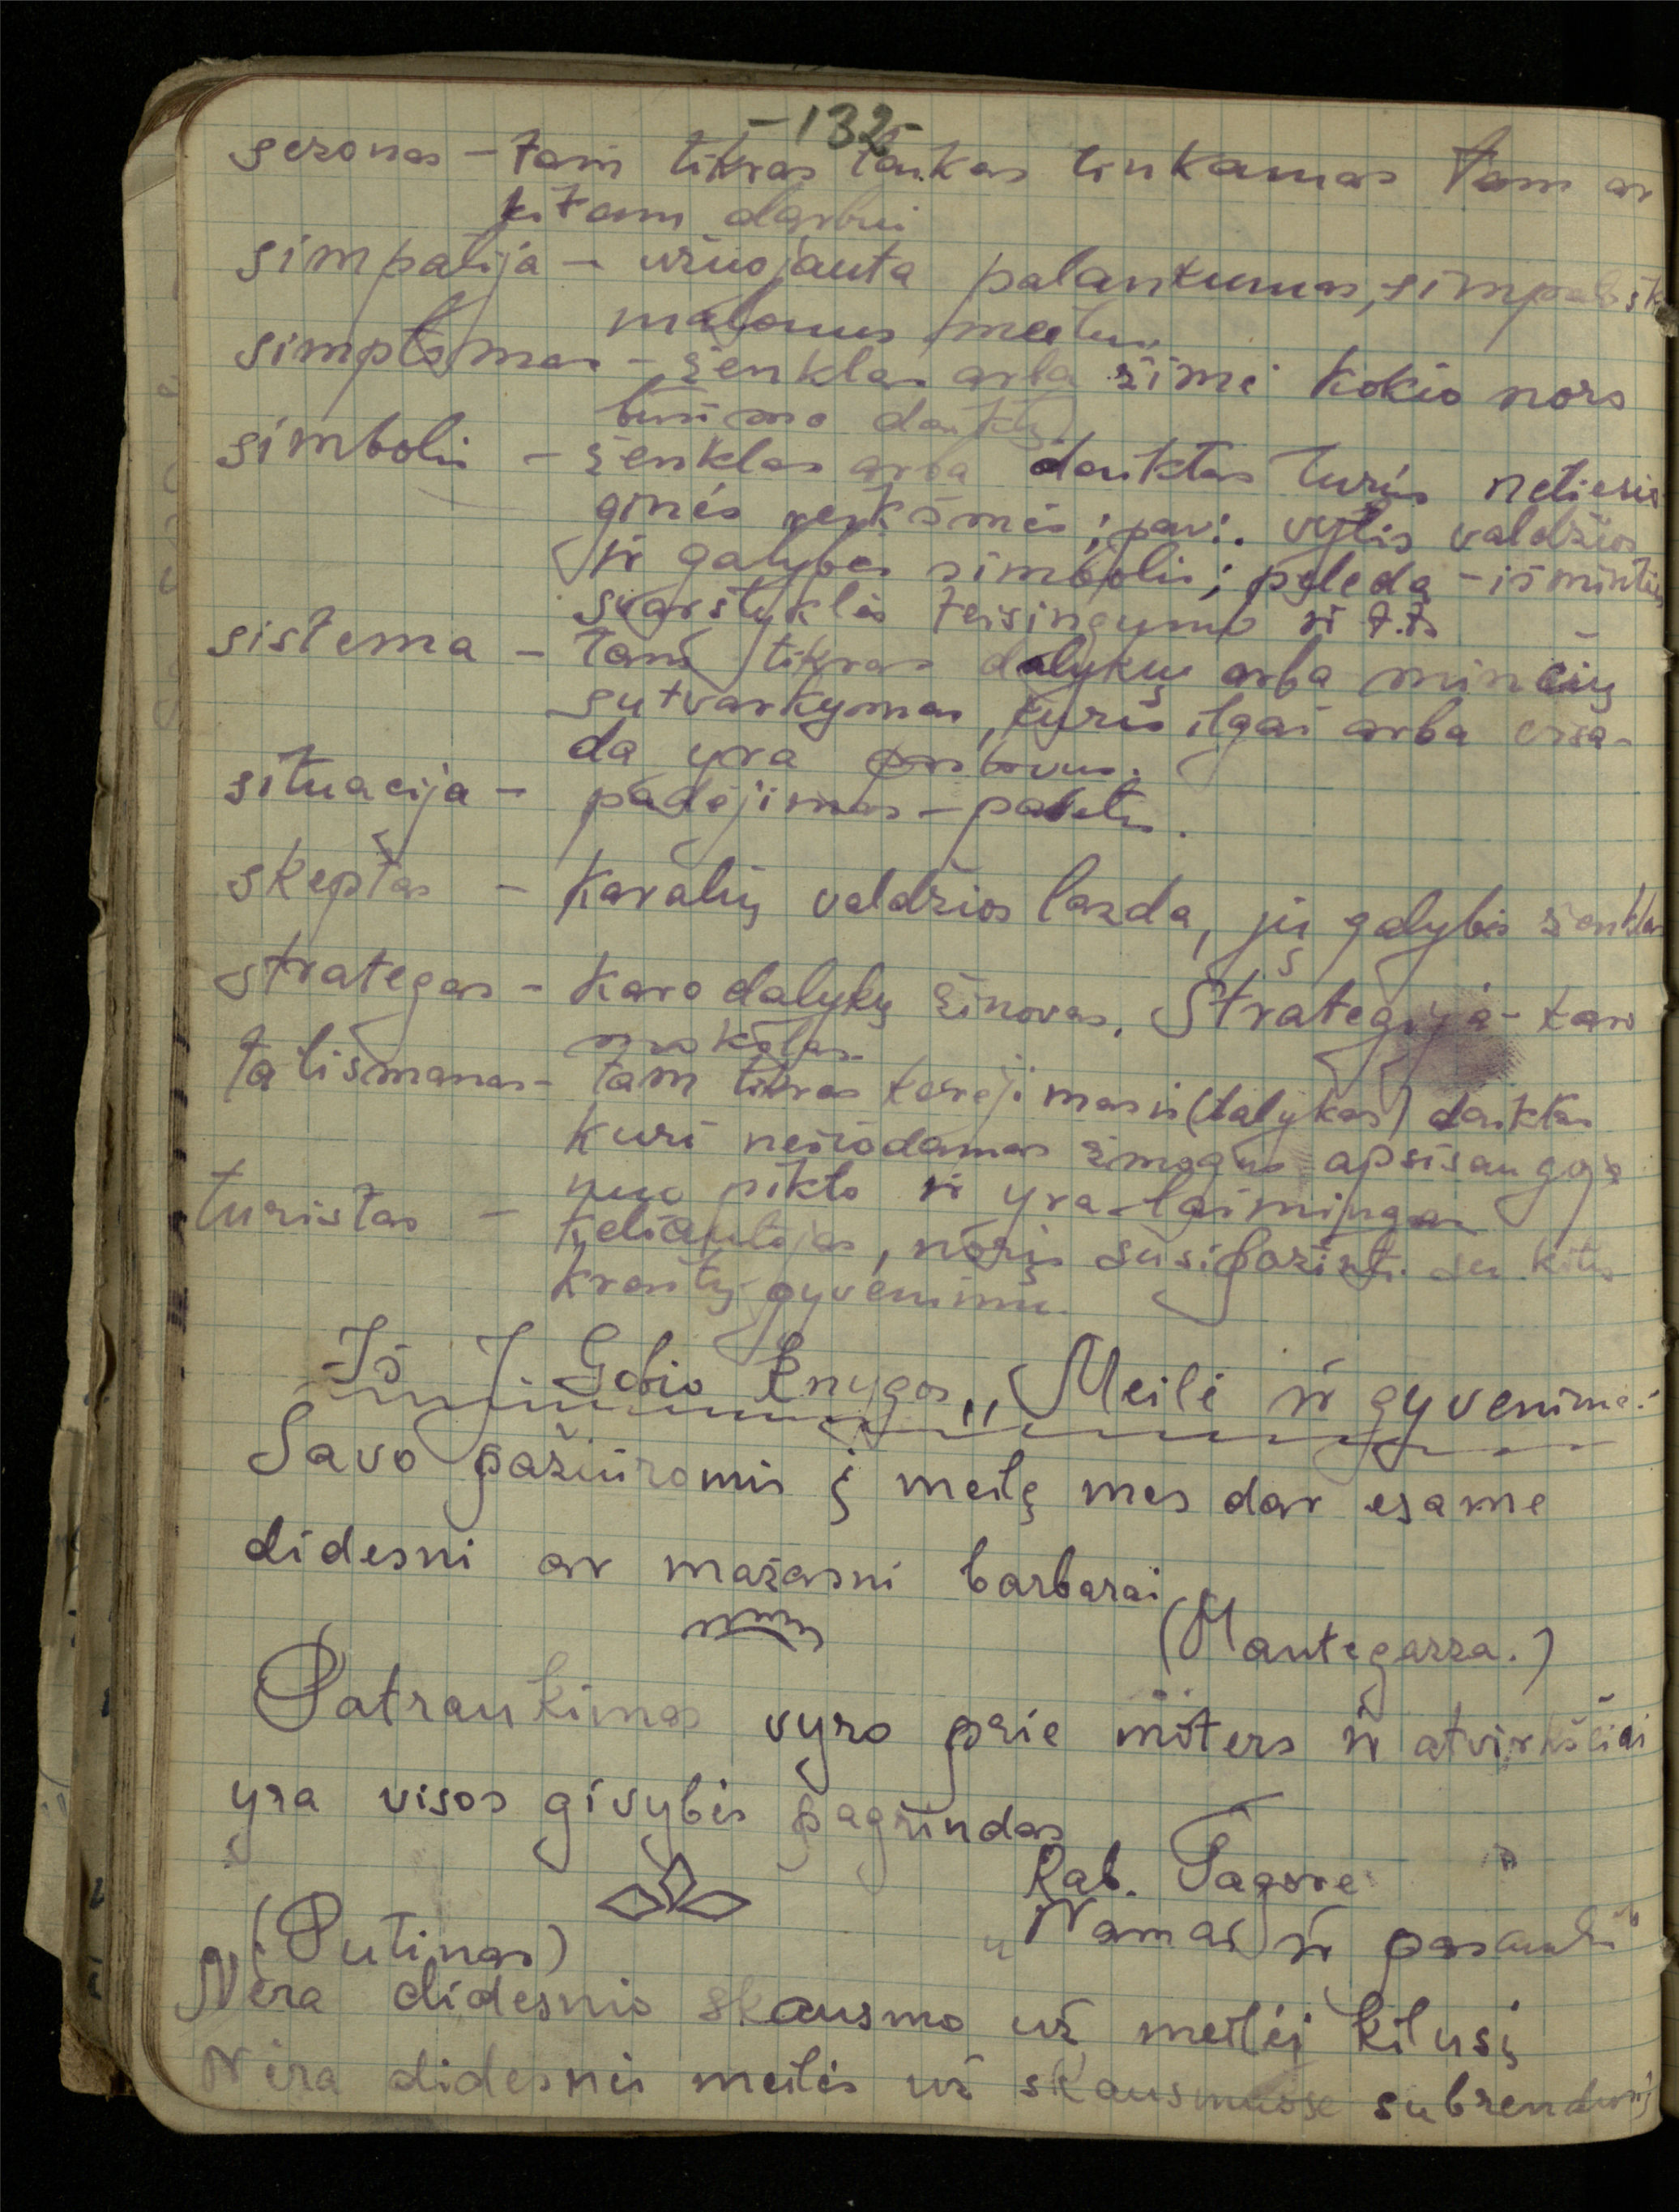 -132-
sezonas - tam tikras laikas tinkamas tam ar
kitam darbui
simpatija - užuojauta palankumas, simpatišk
malonus meilus
simptomas - ženklas arba žimė kokio nors
busimo daikto
simbolis - ženklas arba daiktas turįs netiesio
ginės reikšmės; pav:. vytis valdžios
ir galybės simbolis; pelėda - išminties
svarstyklės teisingumo ir t.t.
sistema - tam tikras dalykų arba minčių
sutvarkymas, kuris ilgai arba visa-
da yra pastovus.
situacija - padėjimas - padėtis.
skeptas - karalių valdžios lazda, jų galybės ženklas
strategas - karo dalykų žinovas. Strategija - karo
mokslas
talismanas - tam tikras (dalykas) daiktas
kuri nešiodamas žmogus apsisaugoja
nuo pikto ir yra laimingas
turistas - keliautojas, norįs susipažinti su kitų
kraštų gyvenimu.
Iš J. Gobio knygos „Meilė ir gyvenimas
Savo pažiūromis į meilę mes dar esame
didesni ar mažesni barbarai
(Mantegazza.)
Patraukimas vyro prie moters ir atvirkščiai
yra visos givybės pagrindas
Rab. Tagore
„Namai ir pasaulis"
(Putinas)
Nėra didesnio skausmo už meilėj kilusį
Nėra didesnės meilės už skausmuose subrendusią